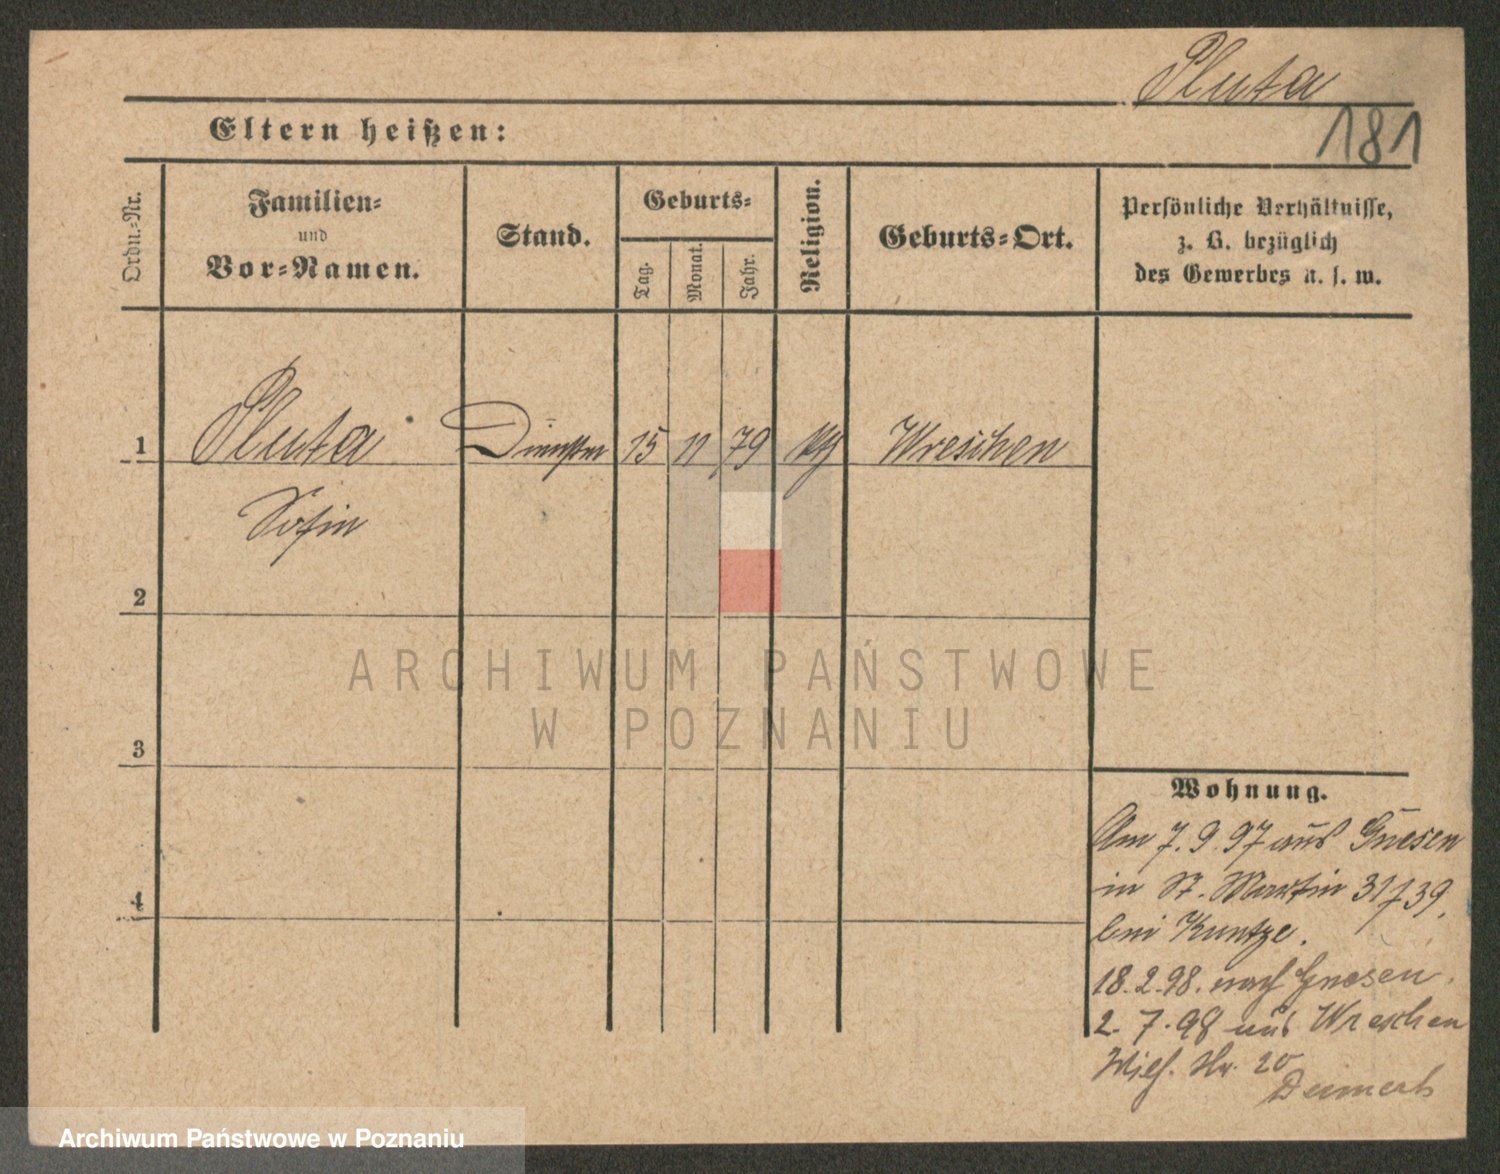 Pluta
181
Eltern heißen:
Ordn.-Nr.
Familien-
und
Vor-Namen.
Stand.
Geburts-
Tag.
Monat.
Jahr.
Religion.
Geburts-Ort.
Persönliche Verhältnisse,
z. B. bezüglich
des Gewerbes u. s. w.
1 Pluta 15 11 79 Wreschen
Sofia
2
3
4
ARCHIWUM PAŃSTWOWE
W POZNANIU
Wohnung.
Am 7.9.97 aus Gnesen
in St. Martin 31/39,
bei Kuntze.
18.2.98. nach Gnesen.
2.7.98 aus Wreschen
Str. 20
Archiwum Państwowe w Poznaniu